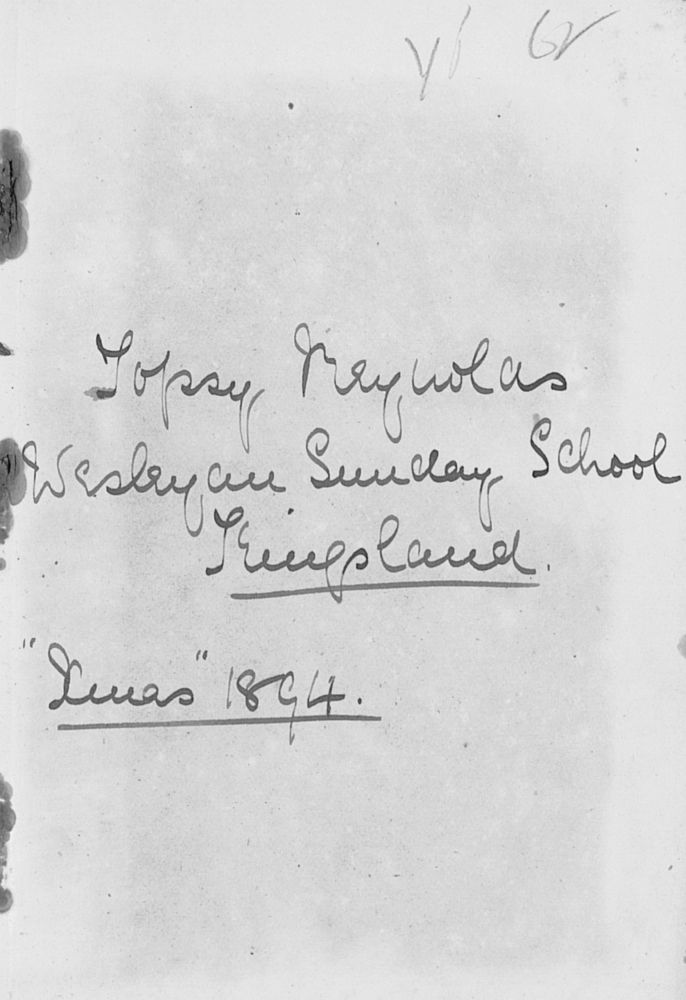 Topsy Reynolds
Wesleyan Sunday School
Kingsland.
"Xmas" 1894.